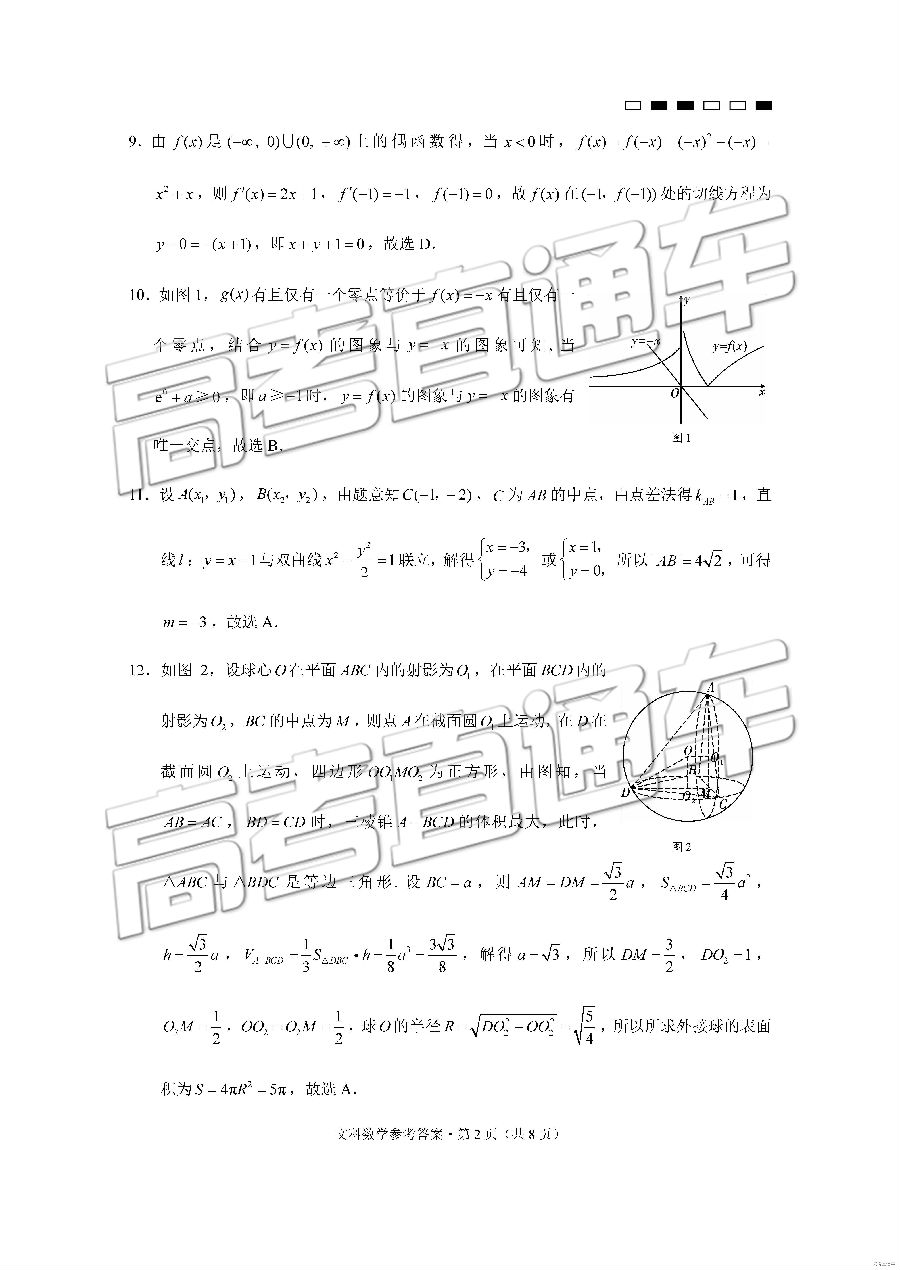 9．由 f(x) 是 (−∞, 0)∪(0, +∞) 上的偶函数得，当 x<0 时， f(x) f(−x) (−x)² −(−x)
x²+x，则 f′(x)=2x 1， f′(−1)=−1， f(−1)=0，故 f(x) 在 (−1, f(−1)) 处的切线方程为
y 0= (x+1)，即 x+y+1=0，故选 D．
10．如图 1， g(x) 有且仅有一个零点等价于 f(x)=−x 有且仅有一
个零点，结合 y=f(x) 的图象与 y= x 的图象可知，当
+a≥0，即 a≥−1 时， y=f(x) 的图象与 y= x 的图象有
唯一交点，故选 B．
y
y=−x
y=f(x)
O
x
图 1
11．设 A(x₁, y₁)， B(x₂, y₂)，由题意知 C(−1, −2)， C 为 AB 的中点，由点差法得 k_AB 1，直
线 l：y=x 1 与双曲线 x² y²/2 =1 联立，解得 {x=−3, y=−4 或 {x=1, y=0, 所以 AB =4√2，可得
m= 3．故选 A．
12．如图 2，设球心 O 在平面 ABC 内的射影为 O₁，在平面 BCD 内的
射影为 O₂，BC 的中点为 M，则点 A 在截面圆 O₁ 上运动, 在 D 在
截面圆 O₂ 上运动，四边形 OO₁MO₂ 为正方形，由图知，当
AB=AC， BD=CD 时，三棱锥 A BCD 的体积最大，此时，
A
O
O₁
B
D
O₂
M
C
图 2
△ABC 与 △BDC 是等边三角形. 设 BC=a，则 AM=DM=√3/2 a， S△BCD =√3/4 a²，
h=√3/2 a， V_A BCD =1/3 S△DBC •h=1/8 a³ =3√3/8，解得 a=√3，所以 DM=3/2， DO₂=1，
O₂M 1/2，OO₂=O₁M=1/2．球 O 的半径 R √(DO₂² OO₂²) √(5/4)，所以所求外接球的表面
积为 S=4πR²=5π，故选 A．
文科数学参考答案·第 2 页（共 8 页）
高考直通车
高考直通车